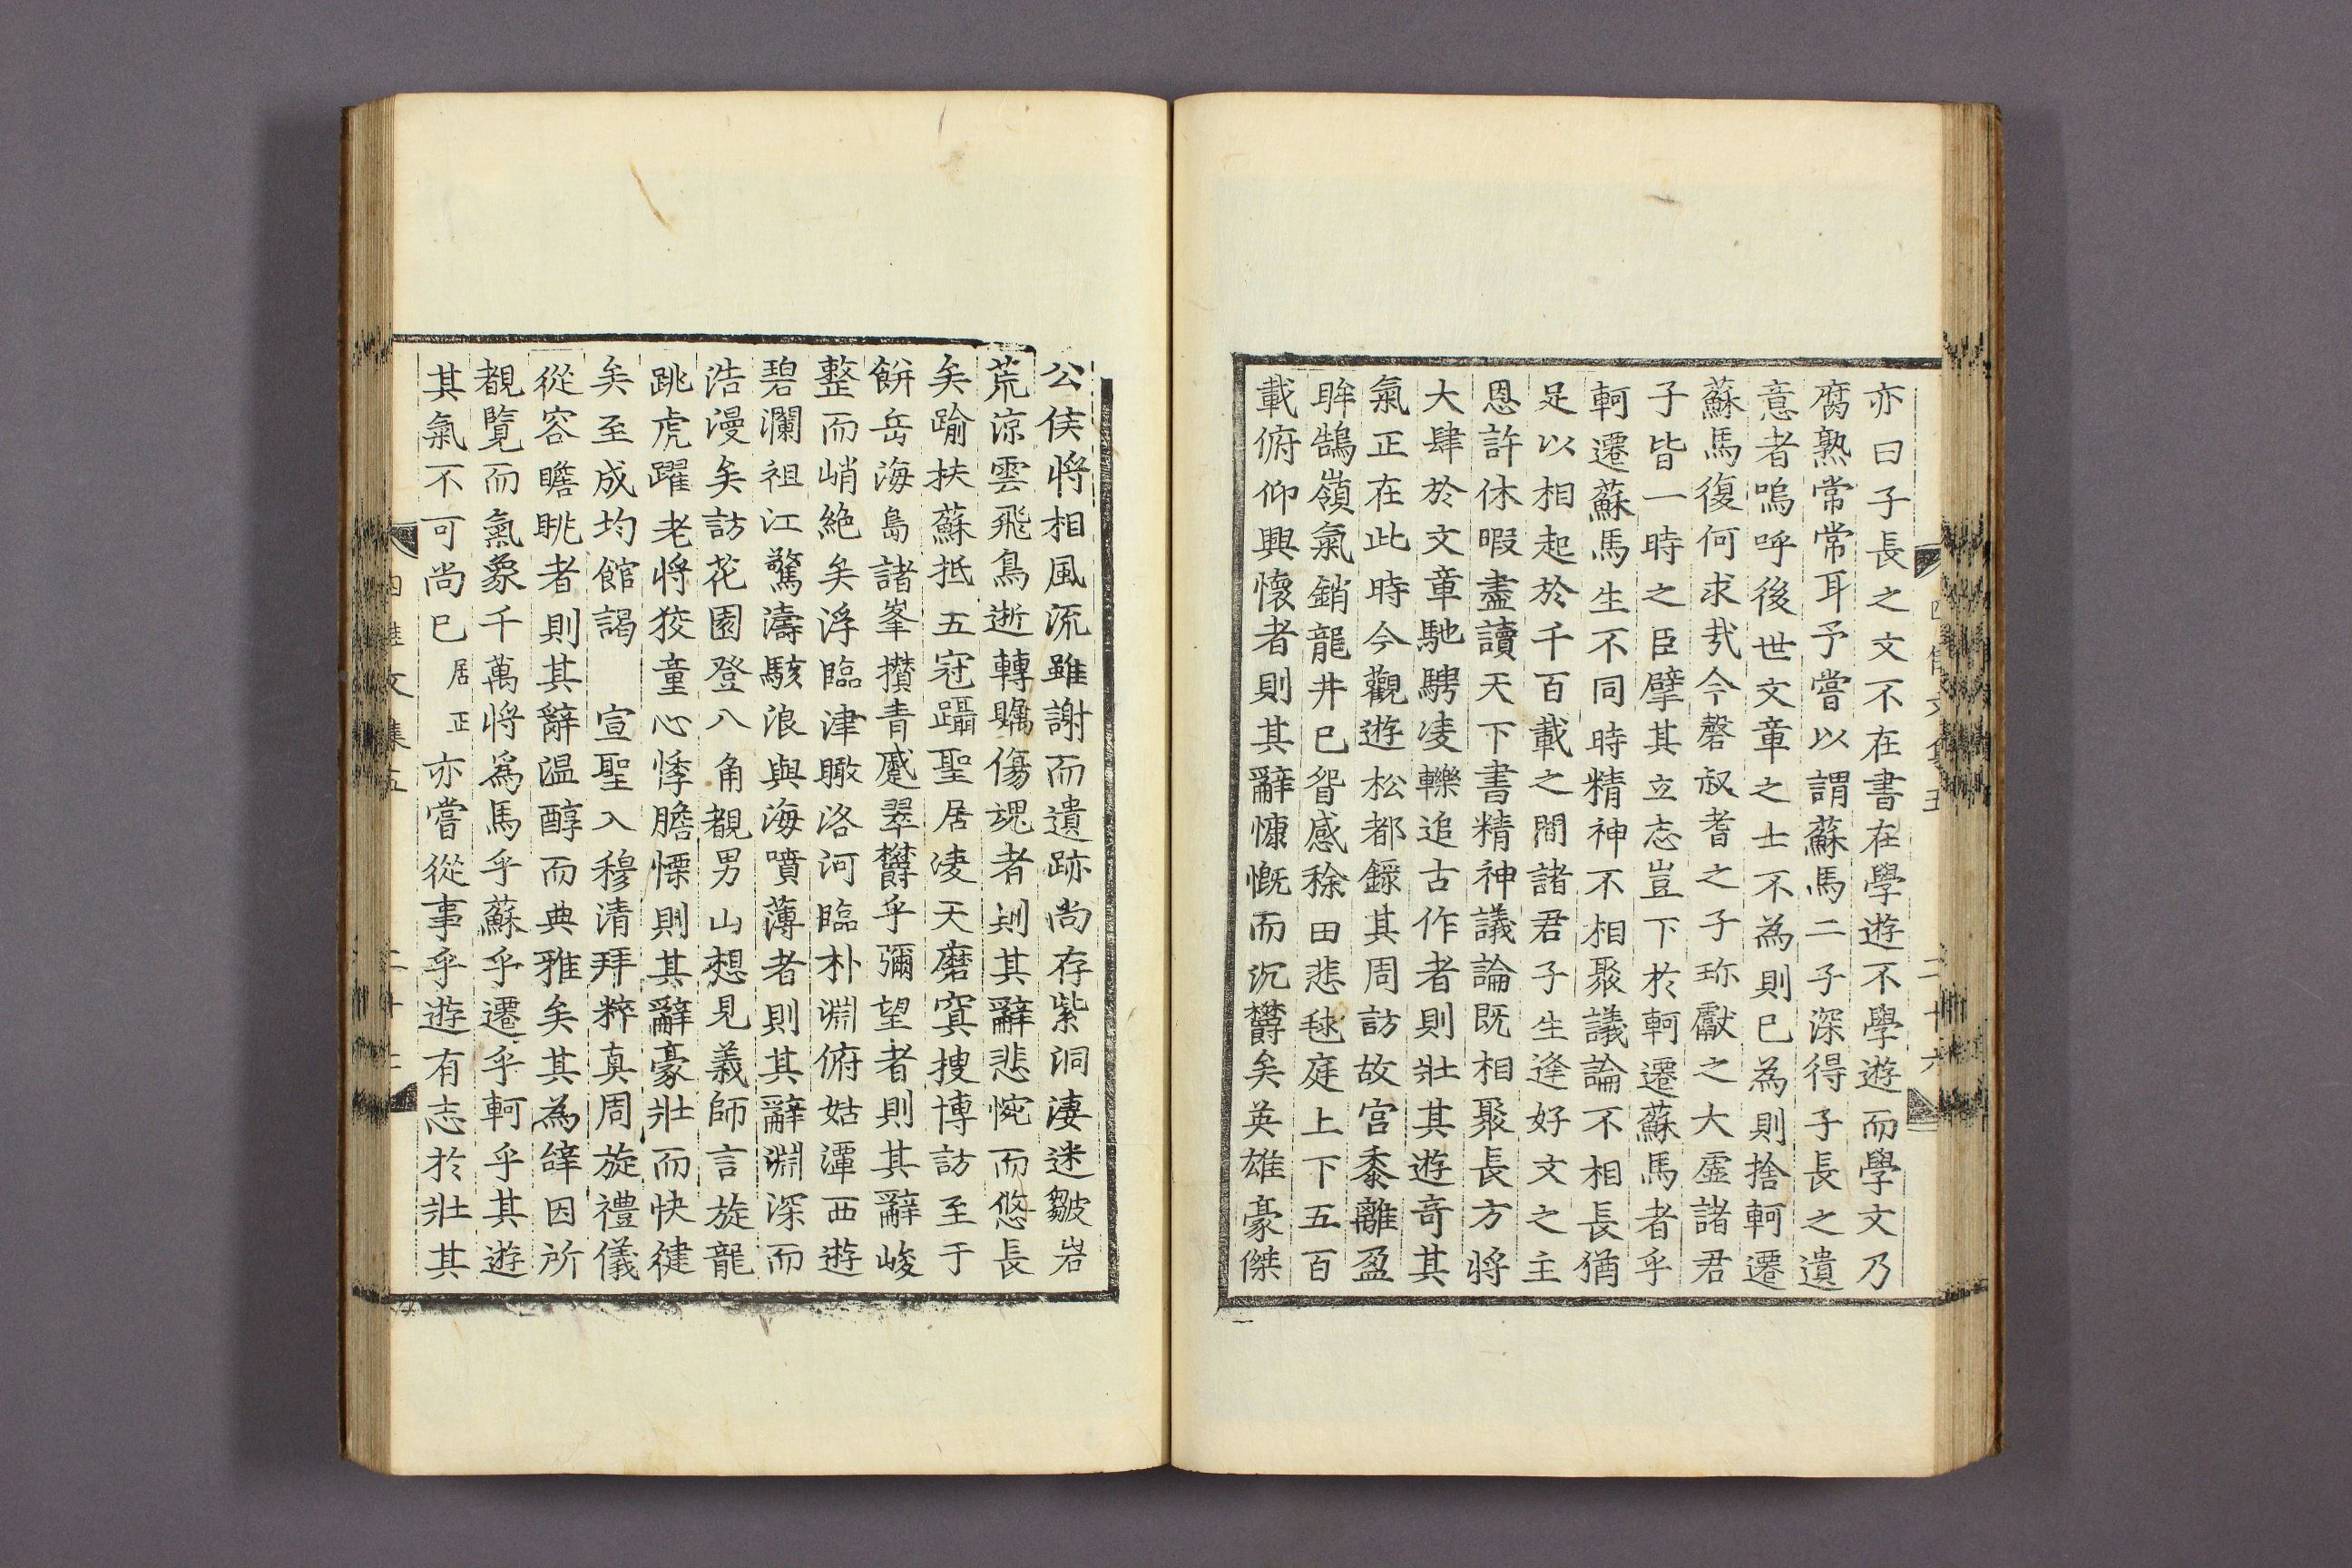 亦曰子長之文不在書在學遊不學遊而學文乃
腐熟常常耳予嘗以謂蘇馬二子深得子長之遺
意者嗚呼後世文章之士不為則已為則捨軻遷
蘇馬復何求㢤今磬叔耆之子珎獻之大虛諸君
子皆一時之臣擘其立志豈下於軻遷蘇馬者乎
軻遷蘇馬生不同時精神不相聚議論不相長猶
足以相起於千百載之間諸君子生逢好文之主
恩許休暇盡讀天下書精神議論既相聚長方將
大肆於文章馳騁凌轢追古作者則壯其遊奇其
氣正在此時今觀遊松都錄其周訪故宮黍離盈
眸鵠嶺氣銷龍井已眢感稌田悲毬庭上下五百
載俯仰興懷者則其辭慷慨而沉欝矣英雄豪傑
四佳文集五
二十六
公侯將相風流雖謝而遺跡尚存紫洞淒迷皺岩
荒涼雲飛鳥逝轉矚傷魂者則其辭悲惋而悠長
矣踰扶蘇抵五冠躡聖居凌天磨窮搜博訪至于
餅岳海島諸峯攢青蹙翠欝乎彌望者則其辭峻
整而峭絶矣浮臨津瞰洛河臨朴淵俯姑潭西遊
碧瀾祖江驚濤駭浪與海噴薄者則其辭淵深而
浩漫矣訪花園登八角覩男山想見義師言旋龍
跳虎躍老將狡童心悸膽慄則其辭豪壯而快健
矣至成均館謁 宣聖入穆清拜粹真周旋禮儀
從容瞻眺者則其辭温醇而典雅矣其為辭因所
覩覽而氣象千萬將爲馬乎蘇乎遷乎軻乎其遊
其氣不可尚已居正亦嘗從事乎遊有志於壯其
四佳文集五